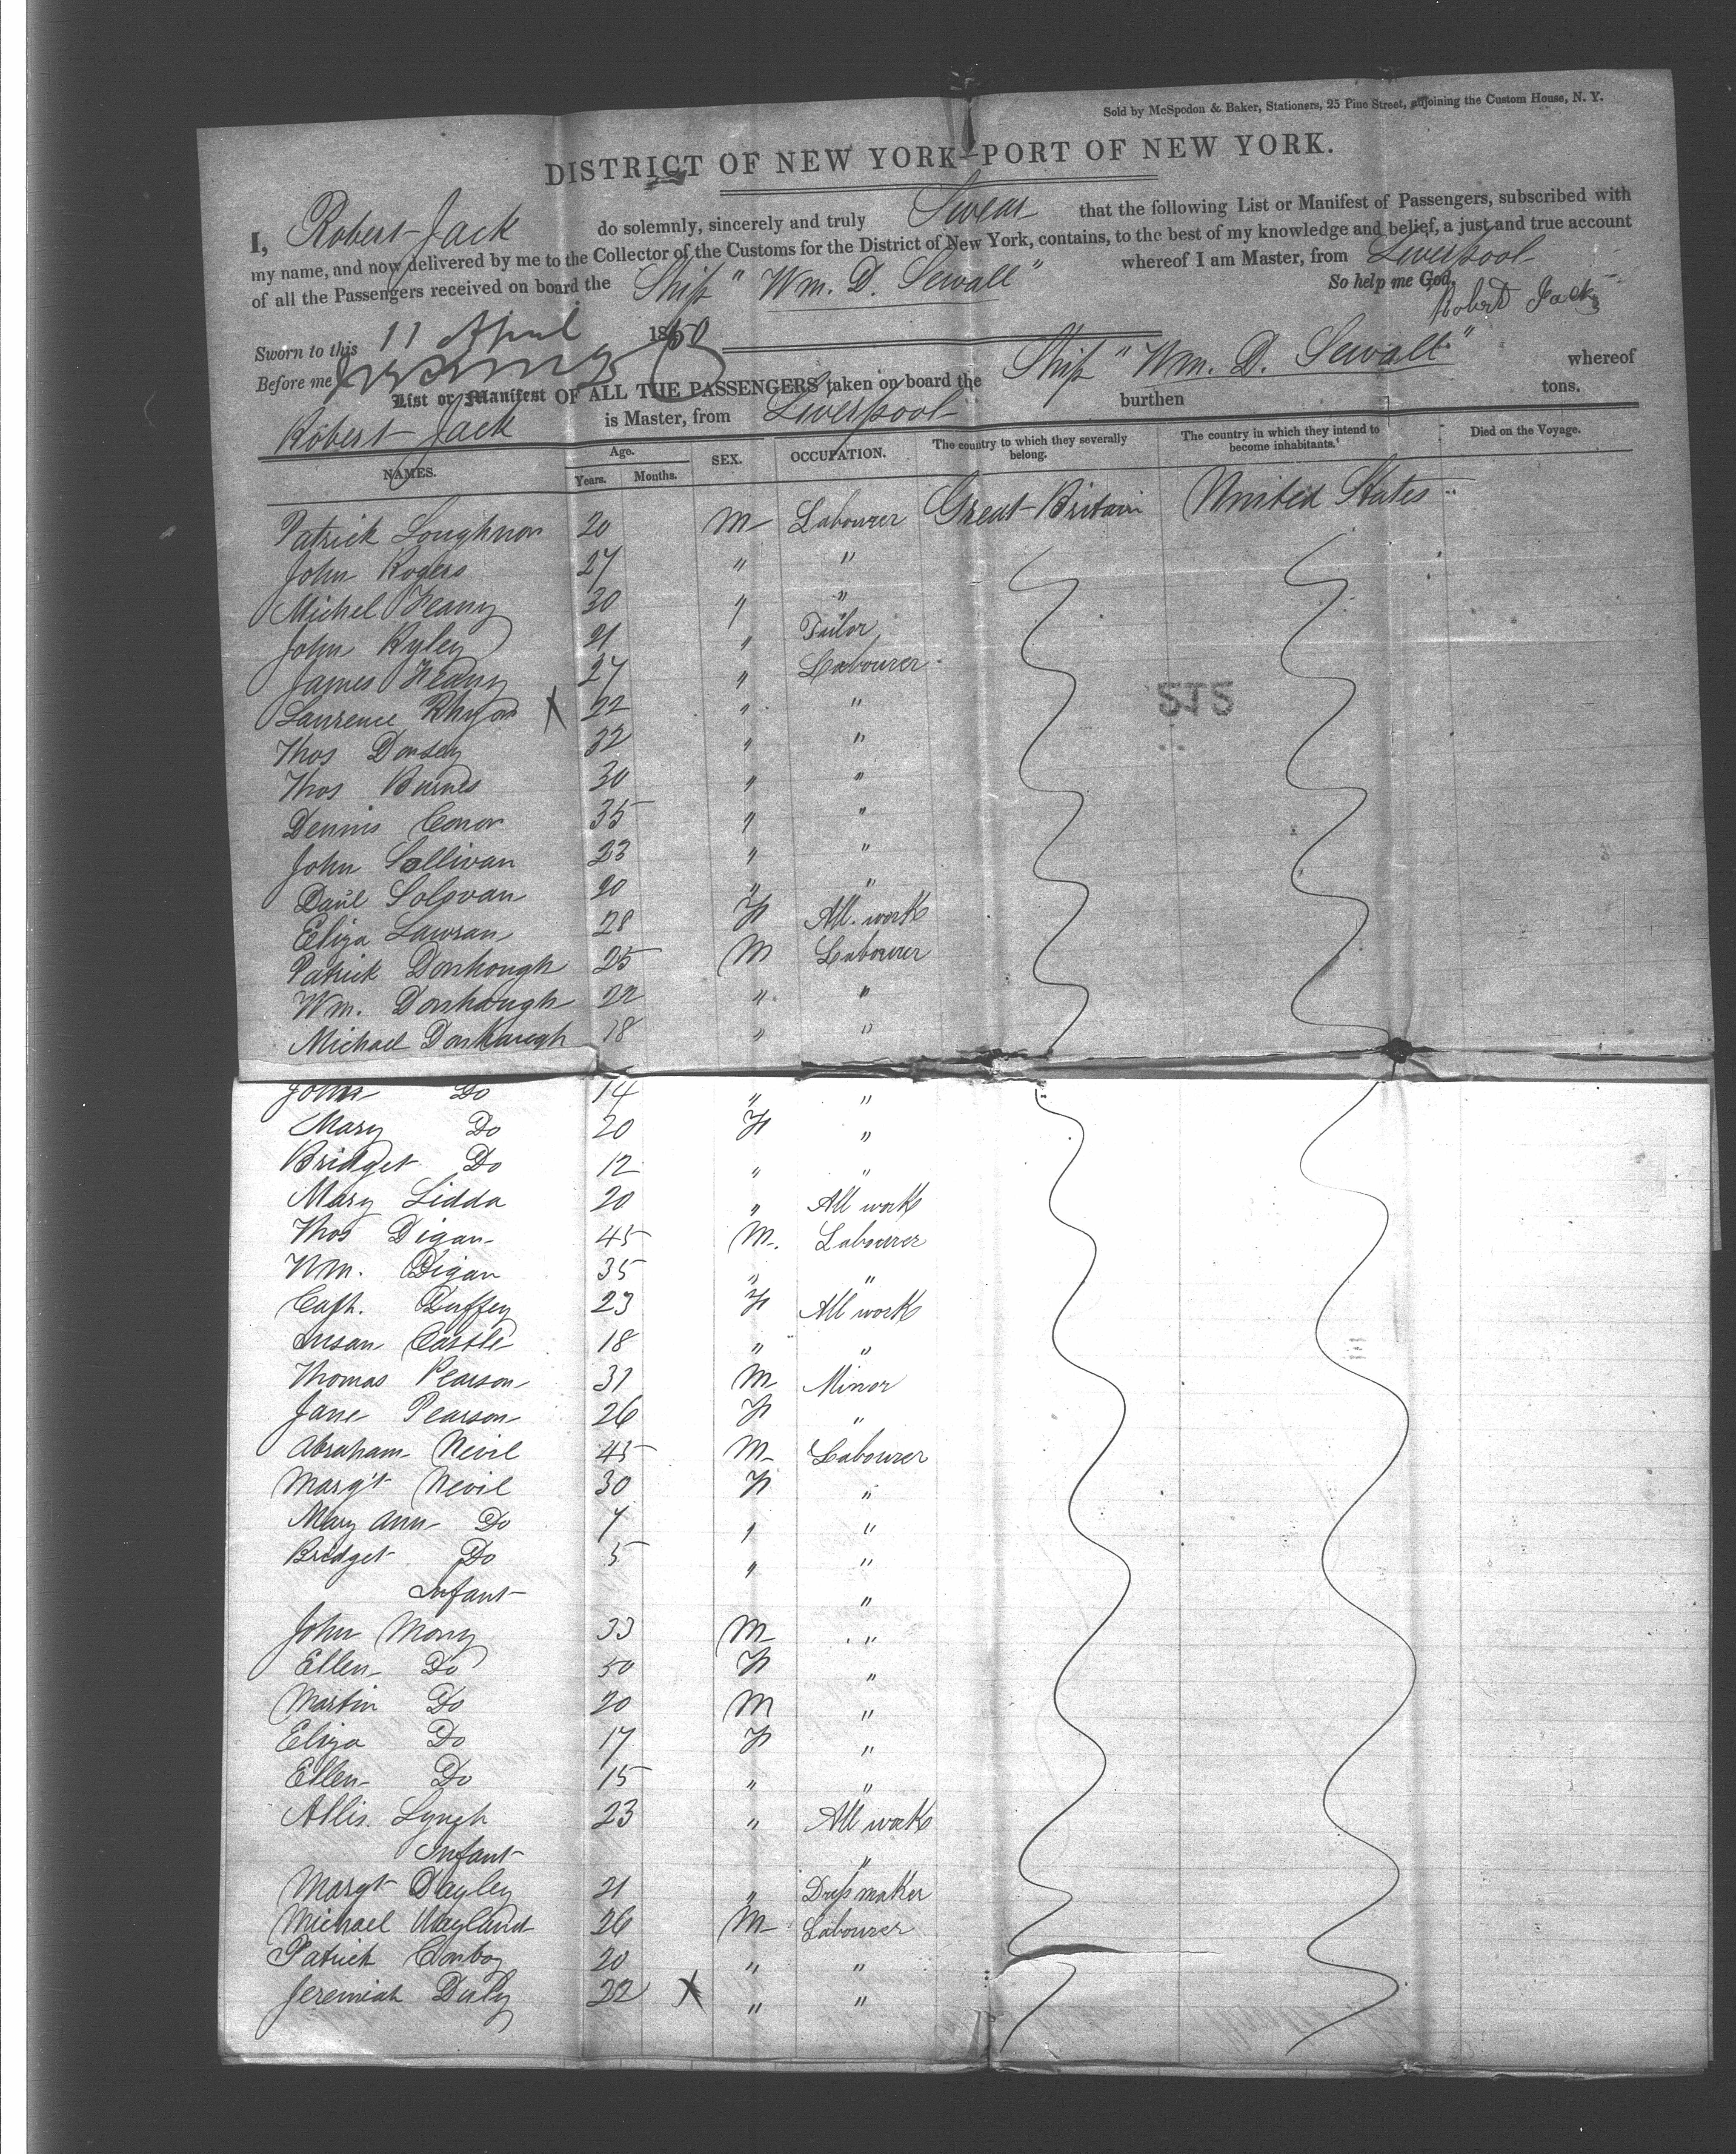 Sold by McSpedon & Baker, Stationers, 25 Pine Street, adjoining the Custom House, N. Y.
DISTRICT OF NEW YORK—PORT OF NEW YORK.
I, Robert Jack do solemnly, sincerely and truly Swear that the following List or Manifest of Passengers, subscribed with
my name, and now delivered by me to the Collector of the Customs for the District of New York, contains, to the best of my knowledge and belief, a just and true account
of all the Passengers received on board the Ship "Wm. D. Sewall" whereof I am Master, from Liverpool
So help me God,
Robert Jack
Sworn to this 11 April 1850
Before me
List or Manifest OF ALL THE PASSENGERS taken on board the Ship "Wm. D. Sewall" whereof
Robert Jack is Master, from Liverpool burthen tons.
NAMES. Age. Years. Months. SEX. OCCUPATION. The country to which they severally belong. The country in which they intend to become inhabitants. Died on the Voyage.
Patrick 20 M Labourer Great Britain United States
John Rogers 27 " "
Michel 30 " "
John Kyley 21 " Tailor
James 27 " Labourer
Laurence X 22 " "
Thos Dorsey 32 " "
Thos Burnes 30 " "
Dennis Conor 35 " "
John Sollivan 23 " "
Danl 20 " "
Eliza Lawsan 28 F All work
Patrick Donhough 25 M Labourer
Wm. Donhough 22 " "
Michael 18 " "
John Do 14 " "
Mary Do 20 F "
Bridget Do 12 " "
Mary Lidda 20 " All work
Thos Digan 45 M. Labourer
Wm. Digan 35 " "
Cath. Duffey 23 F All work
Susan Castle 18 " "
Thomas Pearson 31 M Minor
Jane Pearson 26 F "
Abraham Nevil 45 M Labourer
Margt Nevil 30 F "
Mary Ann Do 7 " "
Bridget Do 5 " "
Infant "
John Mory 33 M "
Ellen Do 50 F "
Martin Do 20 M "
Eliza Do 17 F "
Ellen Do 15 " "
Allis Lynch 23 " All work
Infant "
Margt Dayley 21 " Dress maker
Michael Wayland 26 M Labourer
Patrick Conboy 20 " "
Jeremiah 22 X " "
STS